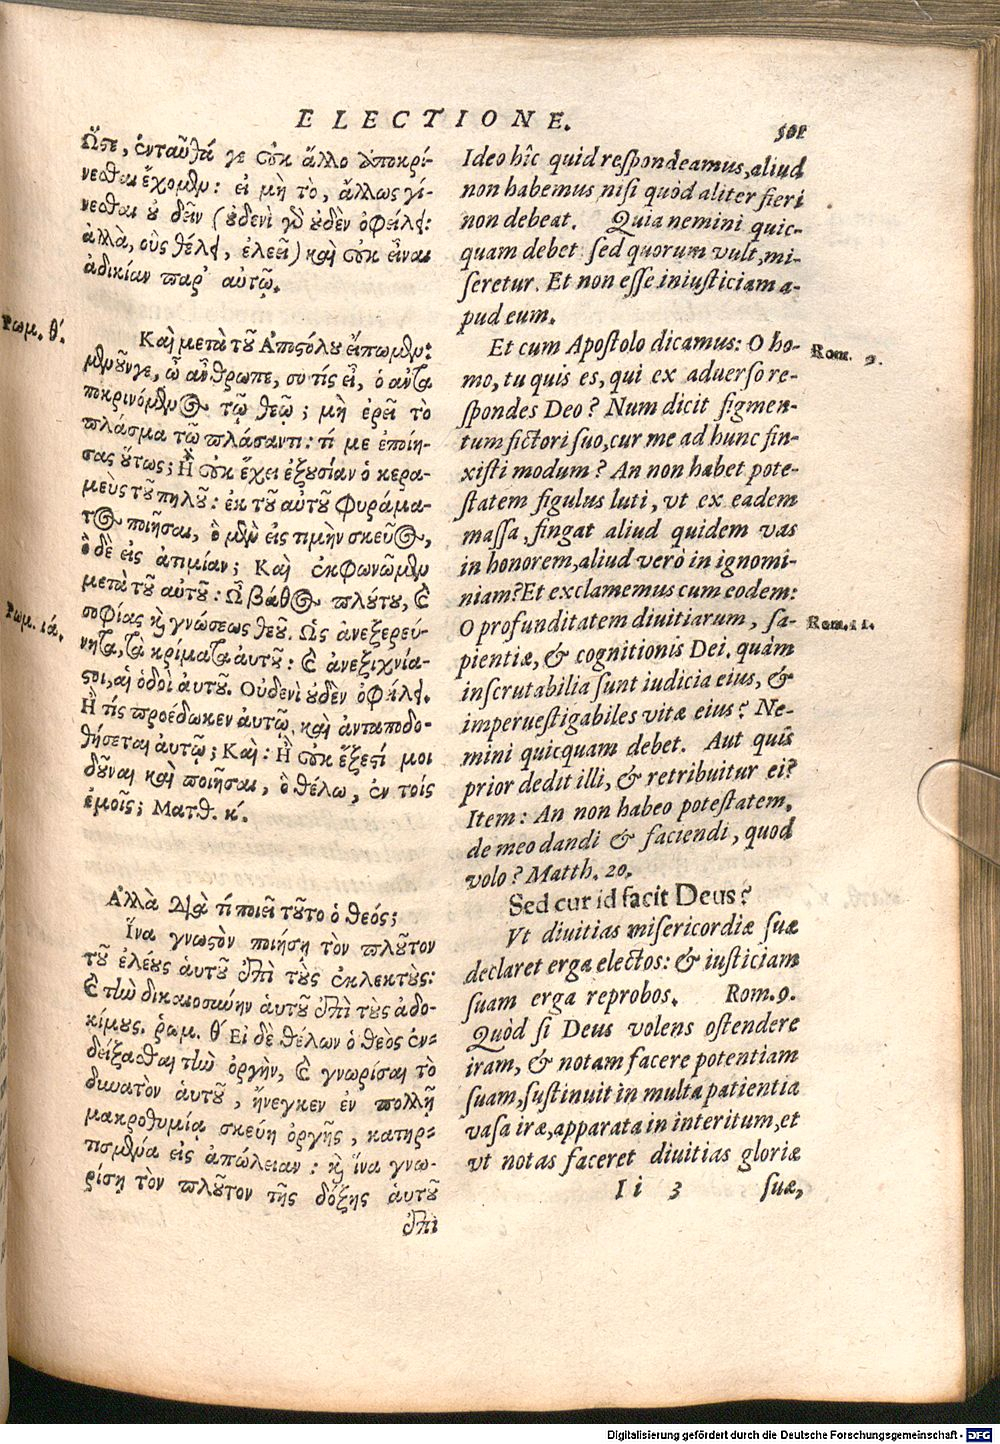 ELECTIONE.
501
Ὥστε, ἐνταῦθά γε οὐκ ἄλλο ἀποκρί-
νεσθαι ἔχομεν: εἰ μὴ τὸ, ἄλλως γί-
νεσθαι οὐ δεῖν (οὐδενὶ γὰρ οὐδὲν ὀφείλει:
ἀλλὰ, οὓς θέλει, ἐλεεῖ) καὶ οὐκ εἶναι
ἀδικίαν παρ' αὐτῷ.
Ρωμ. θ'.
Καὶ μετὰ τοῦ Ἀποστόλου εἴπωμεν:
μενοῦνγε, ὦ ἄνθρωπε, συ τίς εἶ, ὁ ἀντα
ποκρινόμενος τῷ θεῷ; μὴ ἐρεῖ τὸ
πλάσμα τῷ πλάσαντι: τί με ἐποίη-
σας οὕτως; Ἢ οὐκ ἔχει ἐξουσίαν ὁ κερα-
μεὺς τοῦ πηλοῦ: ἐκ τοῦ αὐτοῦ φυράμα-
τος ποιῆσαι, ὃ μὲν εἰς τιμὴν σκεῦος,
ὃ δὲ εἰς ἀτιμίαν; Καὶ ἐκφωνῶμεν
μετὰ τοῦ αὐτοῦ: Ὦ βάθος πλούτου, καὶ
Ρωμ. ιά.
σοφίας καὶ γνώσεως θεοῦ. Ὡς ἀνεξερεύ-
νητα, τὰ κρίματα αὐτοῦ: καὶ ἀνεξιχνία-
στοι, αἱ ὁδοὶ αὐτοῦ. Οὐδενὶ οὐδὲν ὀφείλει.
Ἢ τίς προέδωκεν αὐτῷ, καὶ ἀνταποδο-
θήσεται αὐτῷ; Καὶ: Ἢ οὐκ ἔξεστί μοι
δοῦναι καὶ ποιῆσαι, ὃ θέλω, ἐν τοῖς
ἐμοῖς; Ματθ. κ'.
Ἀλλὰ διὰ τί ποιεῖ τοῦτο ὁ θεός;
Ἵνα γνωστὸν ποιήσῃ τὸν πλοῦτον
τοῦ ἐλέους αὑτοῦ ἐπὶ τοὺς ἐκλεκτούς:
καὶ τὴν δικαιοσύνην αὑτοῦ ἐπὶ τοὺς ἀδο-
κίμους. ῥωμ. θ' Εἰ δὲ θέλων ὁ θεὸς ἐν-
δείξασθαι τὴν ὀργὴν, καὶ γνωρίσαι τὸ
δυνατὸν αὑτοῦ, ἤνεγκεν ἐν πολλῇ
μακροθυμίᾳ σκεύη ὀργῆς, κατηρ-
τισμένα εἰς ἀπώλειαν: καὶ ἵνα γνω-
ρίσῃ τὸν πλοῦτον τῆς δόξης αὑτοῦ
ἐπὶ
Ideo hîc quid respondeamus, aliud
non habemus nisi quòd aliter fieri
non debeat. Quia nemini quic-
quam debet sed quorum vult, mi-
seretur. Et non esse iniusticiam a-
pud eum.
Et cum Apostolo dicamus: O ho-
Rom. 9.
mo, tu quis es, qui ex aduerso re-
spondes Deo? Num dicit figmen-
tum fictori suo, cur me ad hunc fin-
xisti modum? An non habet pote-
statem figulus luti, vt ex eadem
massa, fingat aliud quidem vas
in honorem, aliud verò in ignomi-
niam? Et exclamemus cum eodem:
O profunditatem diuitiarum, sa-
Rom. 11.
pientiæ, & cognitionis Dei. quàm
inscrutabilia sunt iudicia eius, &
imperuestigabiles vitæ eius? Ne-
mini quicquam debet. Aut quis
prior dedit illi, & retribuitur ei?
Item: An non habeo potestatem,
de meo dandi & faciendi, quod
volo? Matth. 20.
Sed cur id facit Deus?
Vt diuitias misericordiæ suæ
declaret erga electos: & iusticiam
suam erga reprobos. Rom. 9.
Quòd si Deus volens ostendere
iram, & notam facere potentiam
suam, sustinuit in multa patientia
vasa iræ, apparata in interitum, et
vt notas faceret diuitias gloriæ
Ii 3
suæ,
Digitalisierung gefördert durch die Deutsche Forschungsgemeinschaft - DFG